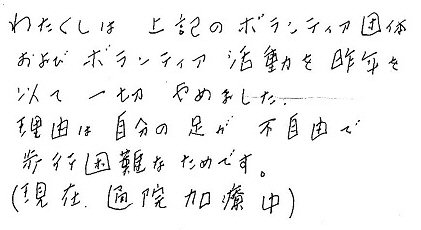 わたくしは 上記のボランティア団体
およびボランティア 活動を昨年を
以て 一切 やめました.
理由は自分の足が 不自由で
歩行困難なためです。
(現在. 通院 加療中)